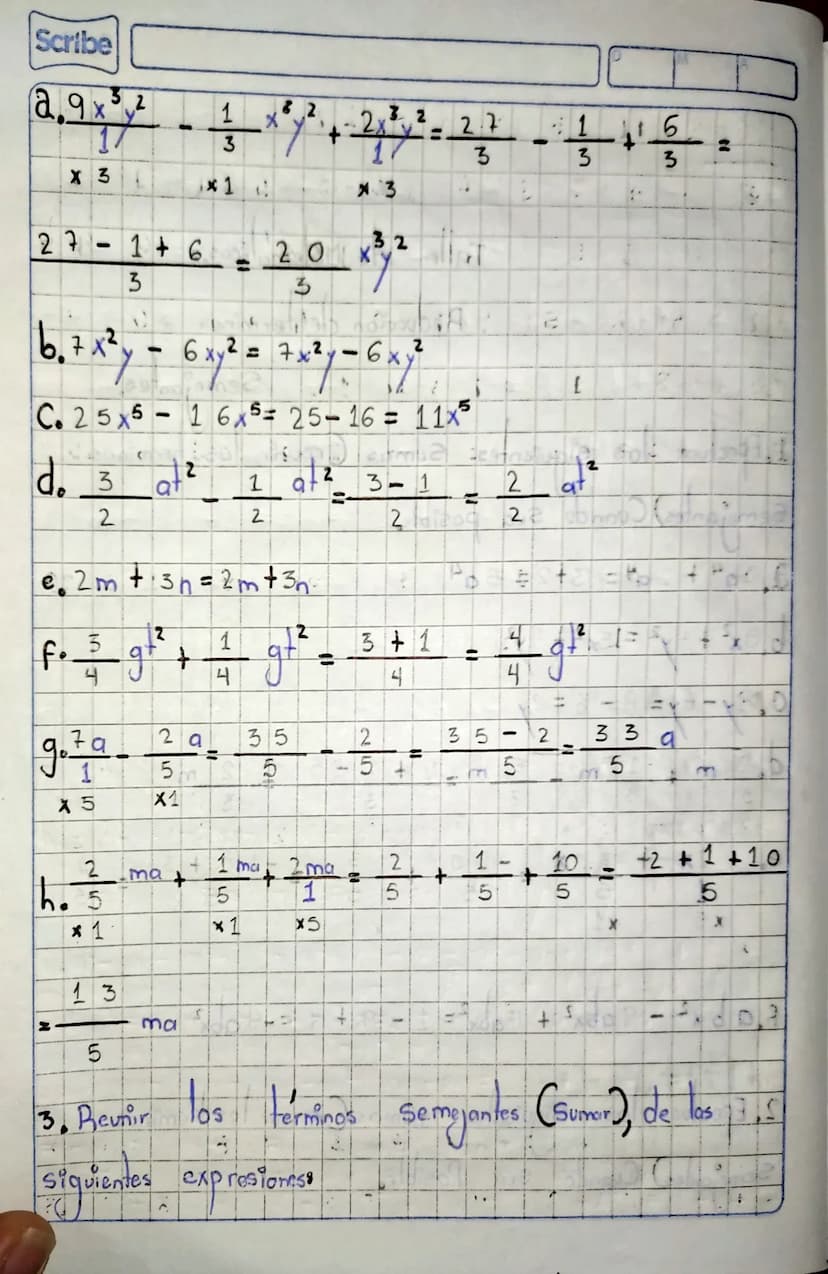 Scribe
a. 9x³y²/1 - 1/3 x³y² + 2x³y²/1 = 27/3 - 1/3 + 6/3 =
x 3 x 1 x 3
27 - 1 + 6/3 = 20/3 x³y²
b. 7x²y - 6xy² = 7x²y - 6xy²
C. 25x⁵ - 16x⁵ = 25 - 16 = 11x⁵
d. 3/2 at² - 1/2 at² = 3 - 1/2 = 2/2 at²
e. 2m + 3n = 2m + 3n
f. 3/4 gt² + 1/4 gt² = 3 + 1/4 = 4/4 gt²
g. 7a/1 - 2a/5 = 35/5 - 2/5 = 35 - 2/5 = 33/5 a
x 5 x1
h. 2/5 ma + 1/5 ma + 2ma/1 = 2/5 + 1/5 + 10/5 = +2 + 1 + 10/5
x 1 x 1 x5 x x
= 13/5 ma
3. Reunir los términos semejantes (Sumar), de las
siguientes expresiones: